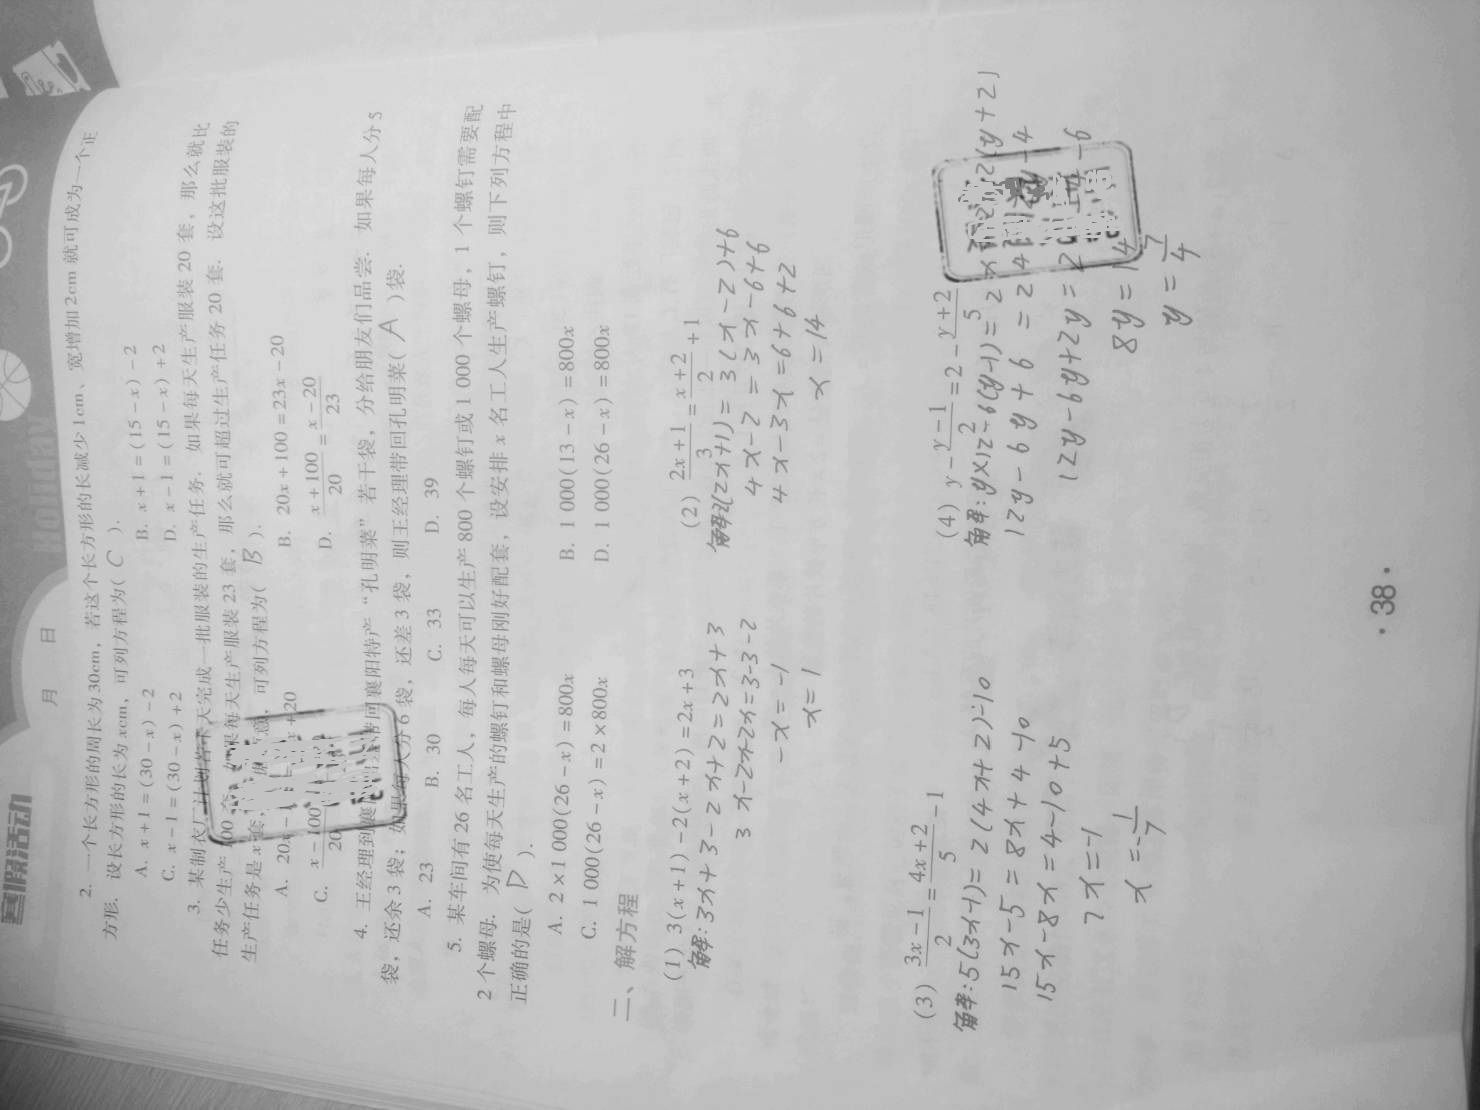 寒假活动
月 日
Holiday
2. 一个长方形的周长为30cm，若这个长方形的长减少1cm、宽增加2cm就可成为一个正
方形. 设长方形的长为xcm，可列方程为( C ).
A. x+1=(30-x)-2 B. x+1=(15-x)-2
C. x-1=(30-x)+2 D. x-1=(15-x)+2
3. 某制衣厂计划若干天完成一批服装的生产任务. 如果每天生产服装20套，那么就比
任务少生产100套；如果每天生产服装23套，那么就可超过生产任务20套. 设这批服装的
生产任务是x套， 可列方程为( B ).
A. 20x- +20 B. 20x+100=23x-20
C. x-100/20 D. x+100/20=x-20/23
4. 王经理到襄阳 带回襄阳特产“孔明菜”若干袋，分给朋友们品尝. 如果每人分5
袋，还余3袋；如果每人分6袋，还差3袋，则王经理带回孔明菜( A )袋.
A. 23 B. 30 C. 33 D. 39
5. 某车间有26名工人，每人每天可以生产800个螺钉或1 000个螺母，1个螺钉需要配
2个螺母. 为使每天生产的螺钉和螺母刚好配套，设安排x名工人生产螺钉，则下列方程中
正确的是( D ).
A. 2×1 000(26-x)=800x B. 1 000(13-x)=800x
C. 1 000(26-x)=2×800x D. 1 000(26-x)=800x
二、解方程
(1) 3(x+1)-2(x+2)=2x+3 (2) 2x+1/3=x+2/2+1
解:3x+3-2x+2=2x+3 解:2(2x+1)=3(x-2)+6
3x-2x-2x=3-3-2 4x-2=3x-6+6
-x=-1 4x-3x=6+6+2
x=1 x=14
(3) 3x-1/2=4x+2/5-1 (4) y-y-1/2=2-y+2/5
解:5(3x-1)=2(4x+2)-10 解:y×12-6(y-1)=2× 2(y+2)
15x-5=8x+4-10 12y-6y+6=24 -4
15x-8x=4-10+5 12y-6y+2y=2 -6
7x=-1 8y=14
x=-1/7 y=7/4
·38·